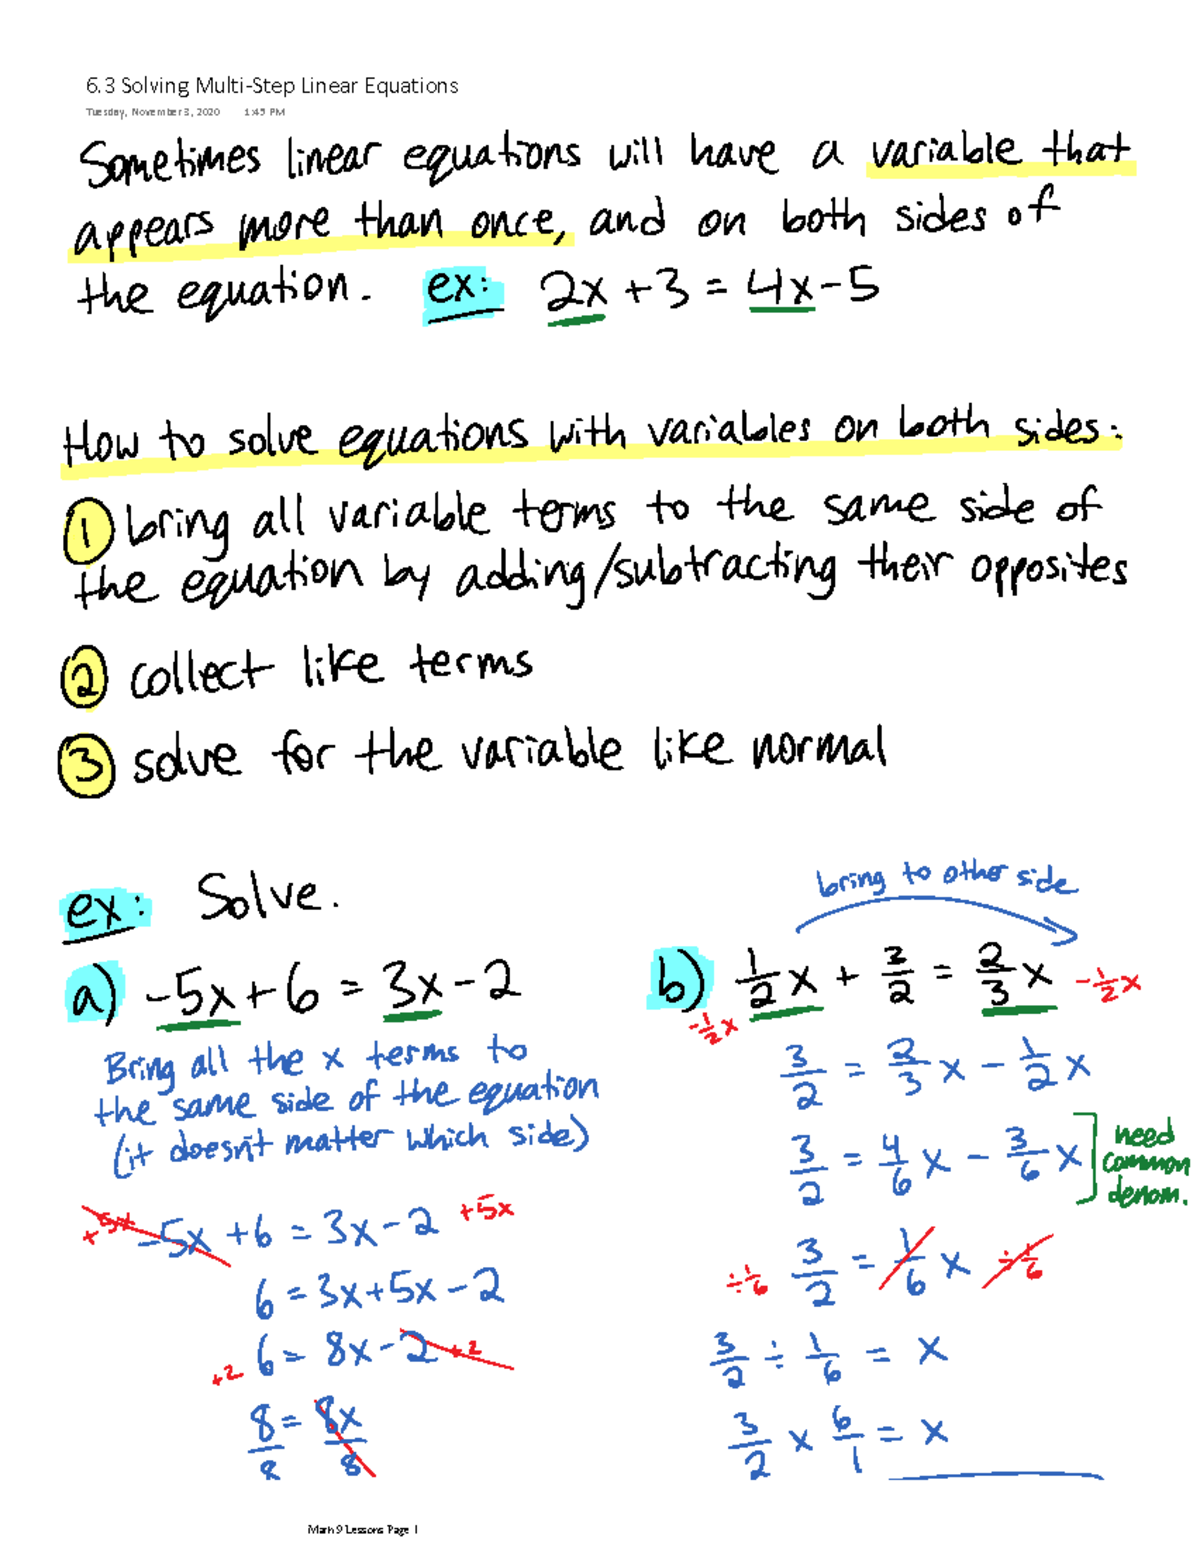 6.3 Solving Multi-Step Linear Equations
Tuesday, November 3, 2020 1:45 PM
Sometimes linear equations will have a variable that
appears more than once, and on both sides of
the equation. ex: 2x + 3 = 4x - 5
How to solve equations with variables on both sides:
① bring all variable terms to the same side of
the equation by adding/subtracting their opposites
② collect like terms
③ solve for the variable like normal
ex: Solve.
a) -5x + 6 = 3x - 2
Bring all the x terms to
the same side of the equation
(it doesn't matter which side)
+5x -5x + 6 = 3x - 2 +5x
6 = 3x + 5x - 2
+2 6 = 8x - 2 +2
8/8 = 8x/8
bring to other side
b) 1/2 x + 3/2 = 2/3 x -1/2 x
-1/2 x
3/2 = 2/3 x - 1/2 x
3/2 = 4/6 x - 3/6 x need
common
denom.
÷1/6 3/2 = 1/6 x ÷1/6
3/2 ÷ 1/6 = x
3/2 x 6/1 = x
Math 9 Lessons Page 1